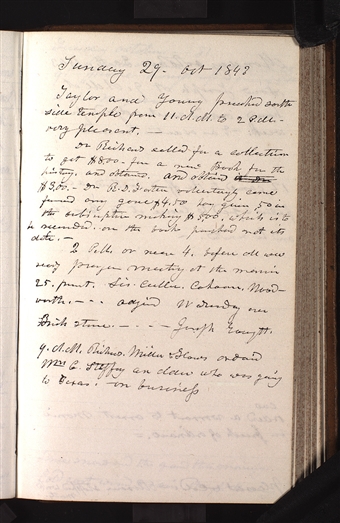 Sunday 29. Oct 1843
Taylor and Young preached south
side Temple from 11. A.M. to 2 P.M.—
very pleasant.—
Dr Richards called for a collection
to get $800. for a new Book for the
and obtained
$300.— Dr voluntarily came
forward and gave $4.50
the subscription making $500, which is to
be recorded. on the book not its
date.—
2 P.M. or near 4.
prayer meeting at the mansion
25. present. Sis. Cutler. Cahoon, Wood-
worth.— - - adjd Wednesday eve
Brick store.— - - — Joseph taught.
9. A.M. Richards. Miller & ordained
Wm C. Steffey an elder who was going
to Texas. on business